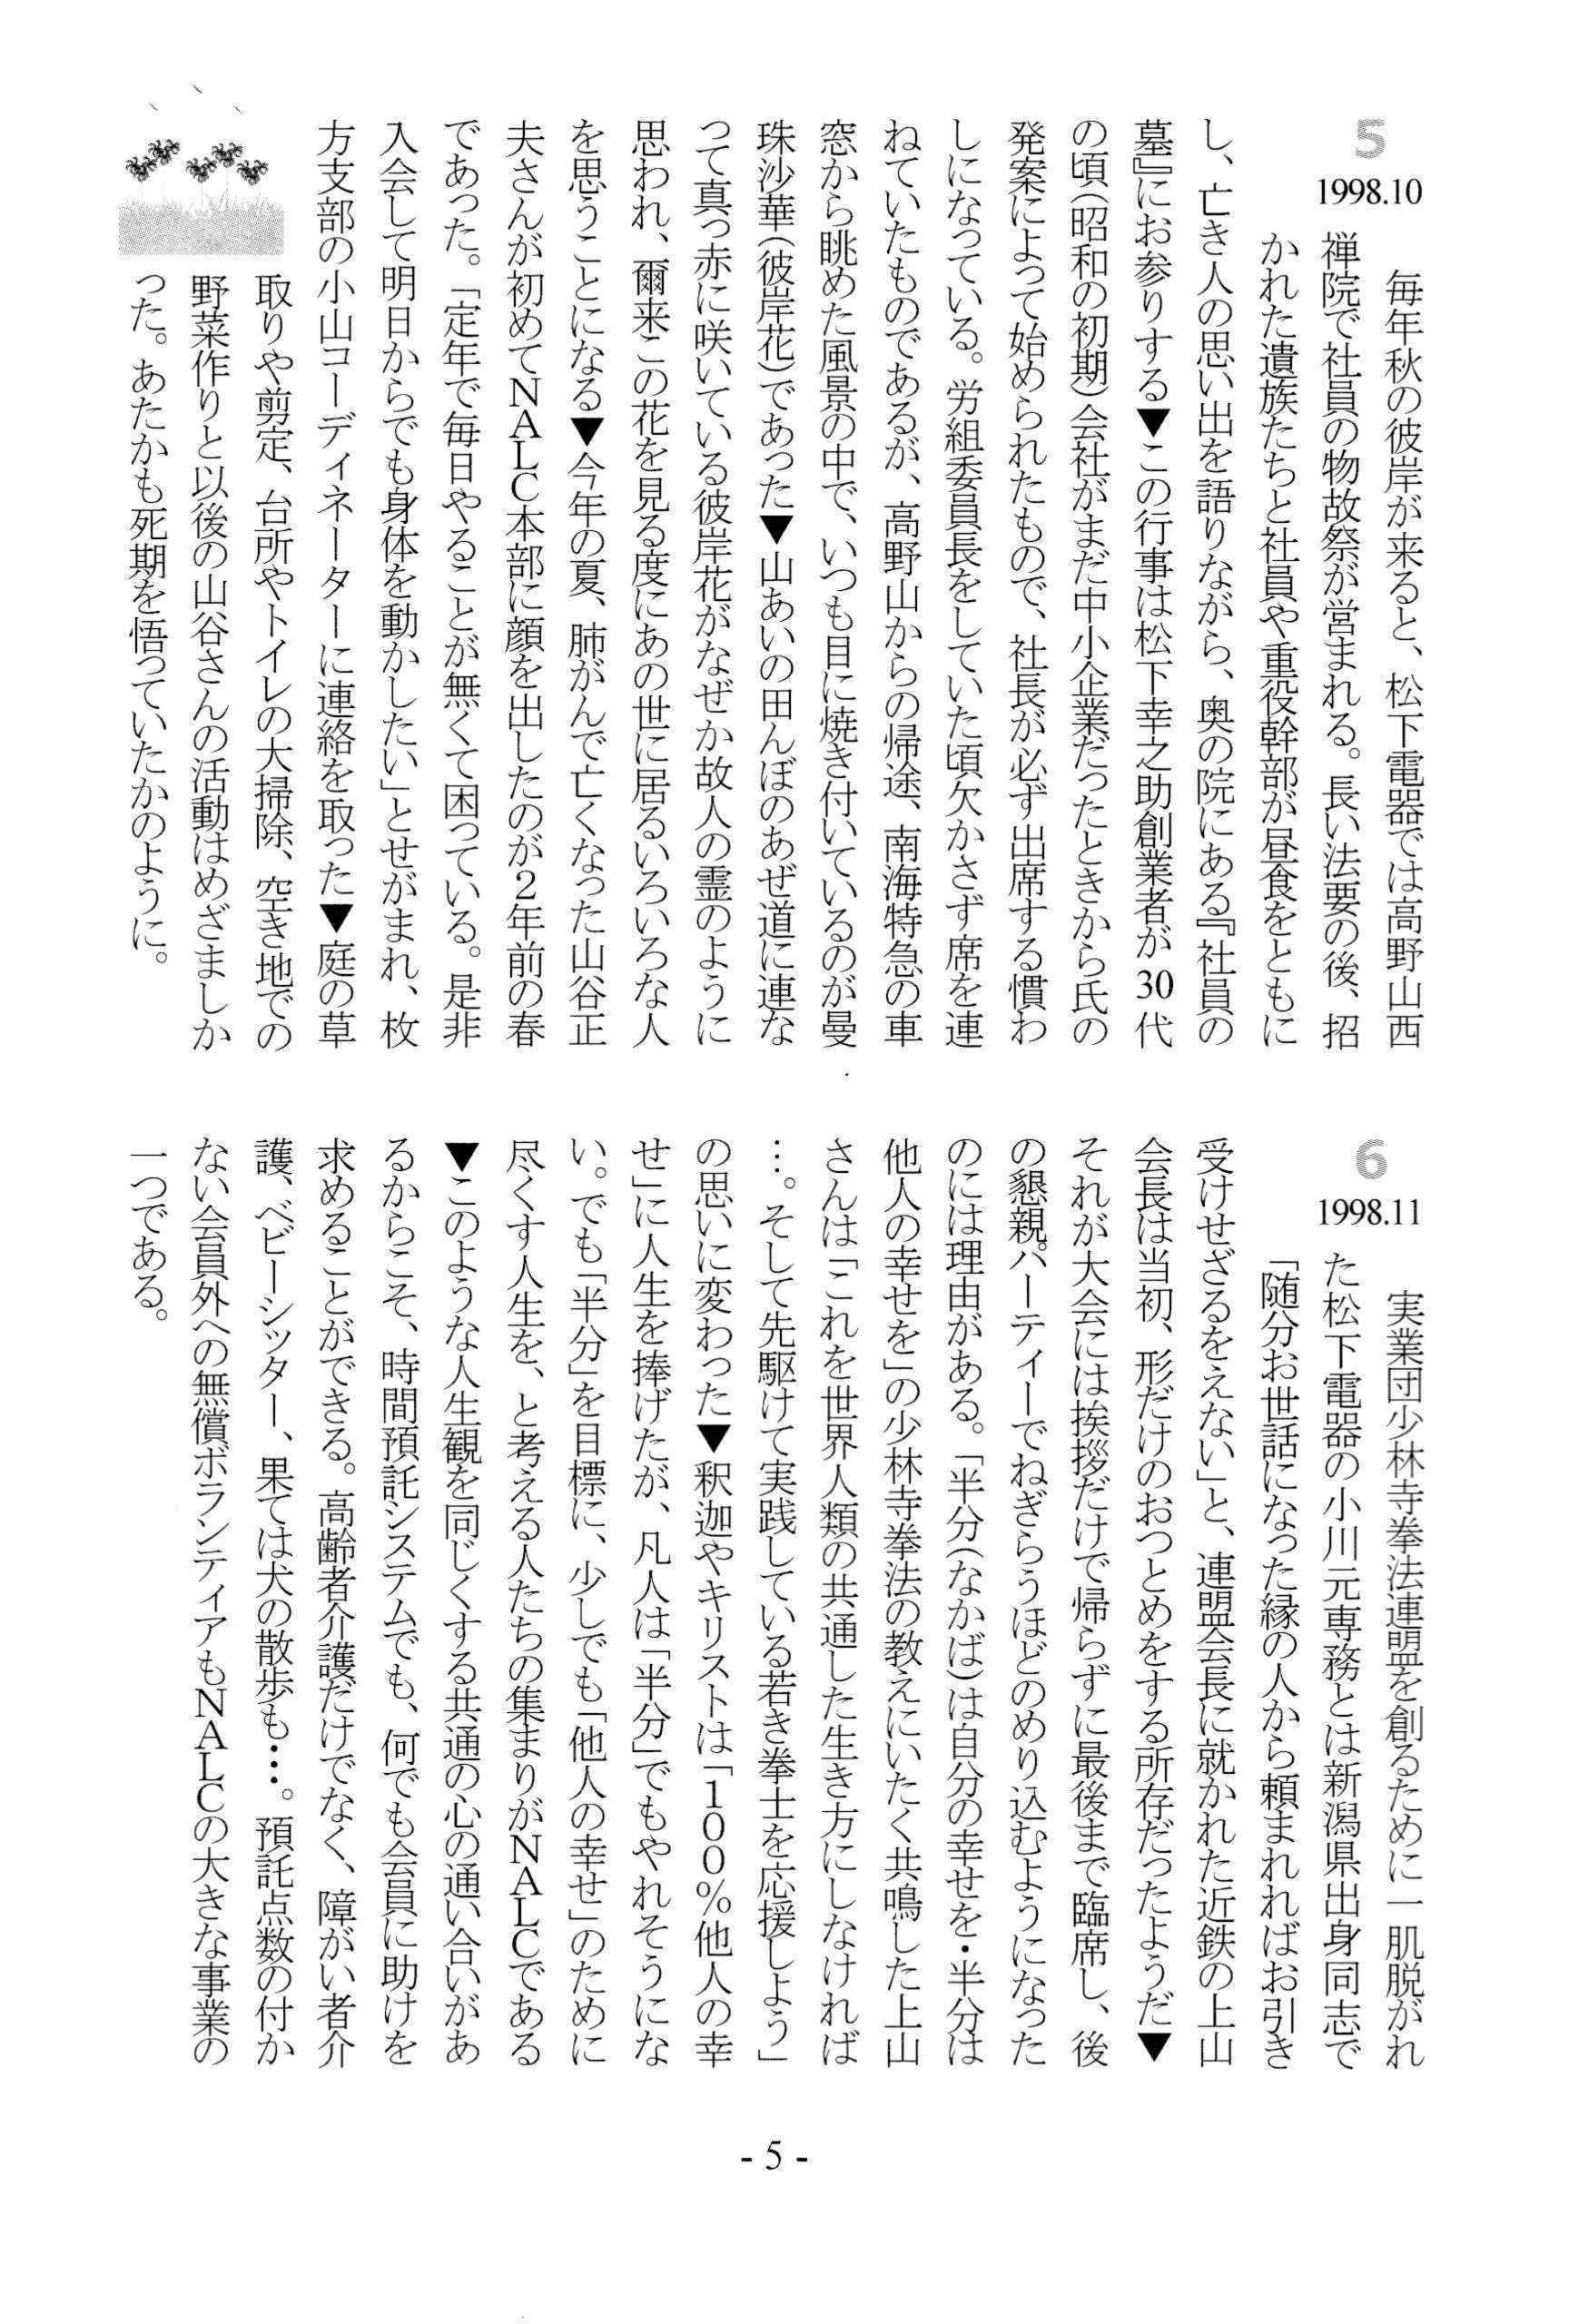 5
1998.10
毎年秋の彼岸が来ると、松下電器では高野山西
禅院で社員の物故祭が営まれる。長い法要の後、招
かれた遺族たちと社員や重役幹部が昼食をともに
し、亡き人の思い出を語りながら、奥の院にある『社員の
墓』にお参りする▼この行事は松下幸之助創業者が30代
の頃(昭和の初期)会社がまだ中小企業だったときから氏の
発案によって始められたもので、社長が必ず出席する慣わ
しになっている。労組委員長をしていた頃欠かさず席を連
ねていたものであるが、高野山からの帰途、南海特急の車
窓から眺めた風景の中で、いつも目に焼き付いているのが曼
珠沙華(彼岸花)であった▼山あいの田んぼのあぜ道に連な
って真っ赤に咲いている彼岸花がなぜか故人の霊のように
思われ、爾来この花を見る度にあの世に居るいろいろな人
を思うことになる▼今年の夏、肺がんで亡くなった山谷正
夫さんが初めてNALC本部に顔を出したのが2年前の春
であった。「定年で毎日やることが無くて困っている。是非
入会して明日からでも身体を動かしたい」とせがまれ、枚
方支部の小山コーディネーターに連絡を取った▼庭の草
取りや剪定、台所やトイレの大掃除、空き地での
野菜作りと以後の山谷さんの活動はめざましか
った。あたかも死期を悟っていたかのように。
6
1998.11
実業団少林寺拳法連盟を創るために一肌脱がれ
た松下電器の小川元専務とは新潟県出身同志で
「随分お世話になった縁の人から頼まれればお引き
受けせざるをえない」と、連盟会長に就かれた近鉄の上山
会長は当初、形だけのおつとめをする所存だったようだ▼
それが大会には挨拶だけで帰らずに最後まで臨席し、後
の懇親パーティーでねぎらうほどのめり込むようになった
のには理由がある。「半分(なかば)は自分の幸せを・半分は
他人の幸せを」の少林寺拳法の教えにいたく共鳴した上山
さんは「これを世界人類の共通した生き方にしなければ
…。そして先駆けて実践している若き拳士を応援しよう」
の思いに変わった▼釈迦やキリストは「100%他人の幸
せ」に人生を捧げたが、凡人は「半分」でもやれそうにな
い。でも「半分」を目標に、少しでも「他人の幸せ」のために
尽くす人生を、と考える人たちの集まりがNALCである
▼このような人生観を同じくする共通の心の通い合いがあ
るからこそ、時間預託システムでも、何でも会員に助けを
求めることができる。高齢者介護だけでなく、障がい者介
護、ベビーシッター、果ては犬の散歩も…。預託点数の付か
ない会員外への無償ボランティアもNALCの大きな事業の
一つである。
- 5 -